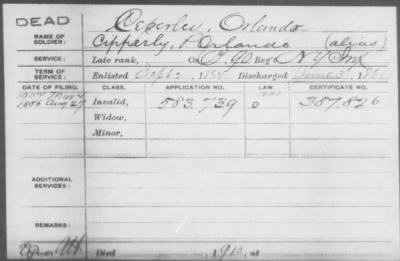 DEAD
Ceperley, Orlando
NAME OF SOLDIER:
Cipperly, Orlando (alias)
SERVICE: Late rank, Co. G, 90 Reg't N.Y. Inf
TERM OF SERVICE: Enlisted Sept 2, 1864 Discharged June 3, 186
DATE OF FILING. CLASS. APPLICATION NO. LAW. CERTIFICATE NO.
1886 Aug 27 Invalid, 583.739 387.826
Widow,
Minor,
ADDITIONAL SERVICES:
REMARKS:
Died , 1910, at